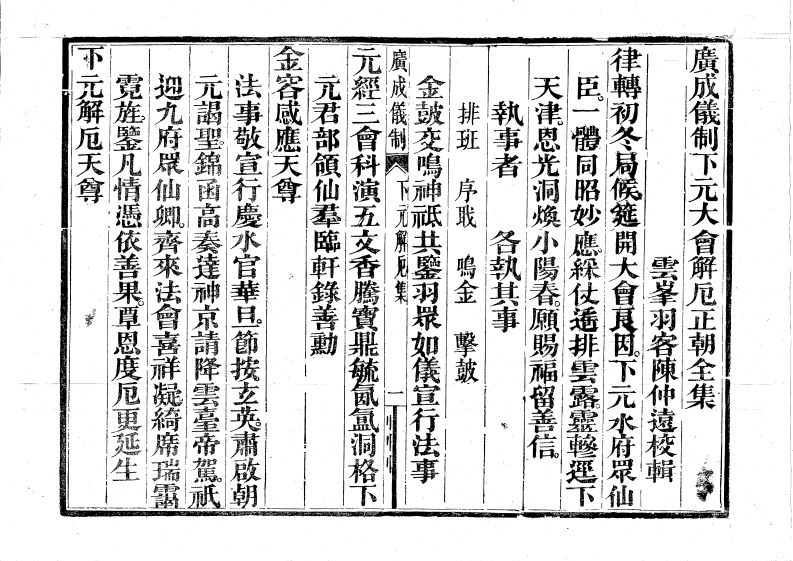 廣成儀制下元大會解厄正朝全集
雲峯羽客陳仲遠校輯
律轉初冬局候筵開大會良因。下元水府眾仙
臣。一體同昭妙應。綵仗遙排雲露。靈軫逕下
天津。恩光洞煥小陽春。願賜福留善信。
執事者　各執其事
排班　序職　鳴金　擊鼓
金鼓交鳴神祇共鑒羽眾如儀宣行法事
廣成儀制　下元解厄集　一
元經三會科演五文香騰寶鼎毓氤氳洞格下
元君部領仙羣臨軒錄善勳
金容感應天尊
法事敬宣行慶水官華旦。節按。玄英。肅啟朝
元謁聖。錦函高奏達神京請降雲臺帝駕。祇
迎九府眾仙卿。齊來法會喜祥凝綺席瑞靄
霓旌。鑒凡情憑依善果。覃恩度厄更延生
下元解厄天尊